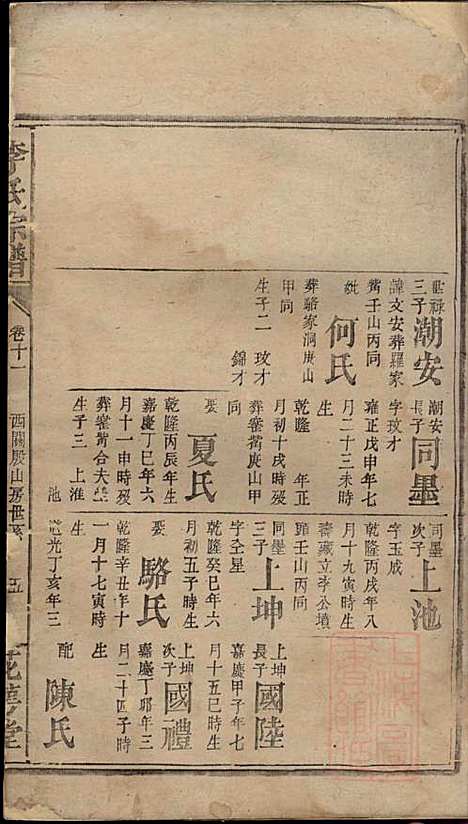 李氏宗譜
卷十一
西關殷山房世系
五
花萼堂
三子潮安
諱文安葬羅家
嘴壬山丙同
妣何氏
葬駱家洞庚山
甲同
生子二 玟才
錦才
潮安
長子同墨
字玟才
雍正戊申年七
月二十三未時
生
乾隆 年正
月初十戌時歿
葬審嘴庚山甲
同
娶夏氏
乾隆丙辰年生
嘉慶丁巳年六
月十一申時歿
葬審嘴合夫塋
生子三 上淮
池
同墨
次子上池
字玉成
乾隆丙戌年八
月十九寅時生
壽藏立李公墳
頭壬山丙同
同墨
三子上坤
字全星
乾隆癸巳年六
月初五子時生
娶駱氏
乾隆辛丑年十
一月十七寅時
生
道光丁亥年三
上坤
長子國陸
嘉慶甲子年七
月十五巳時生
上坤
次子國禮
嘉慶丁卯年三
月二十四子時
生
配陳氏